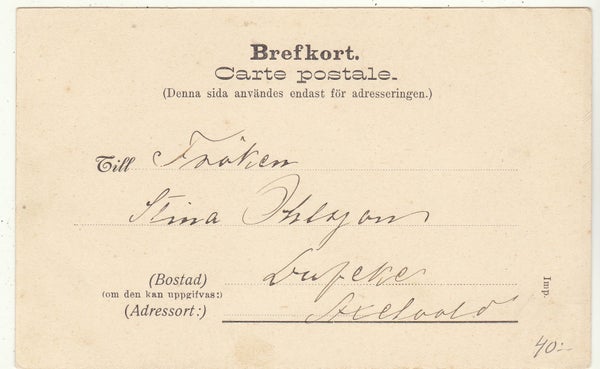 Brefkort.
Carte postale.
(Denna sida användes endast för adresseringen.)
Till Fröken
Stina Ohlsson
(Bostad)
(om den kan uppgifvas:)
(Adressort:) Axelvold
Imp.
40:-